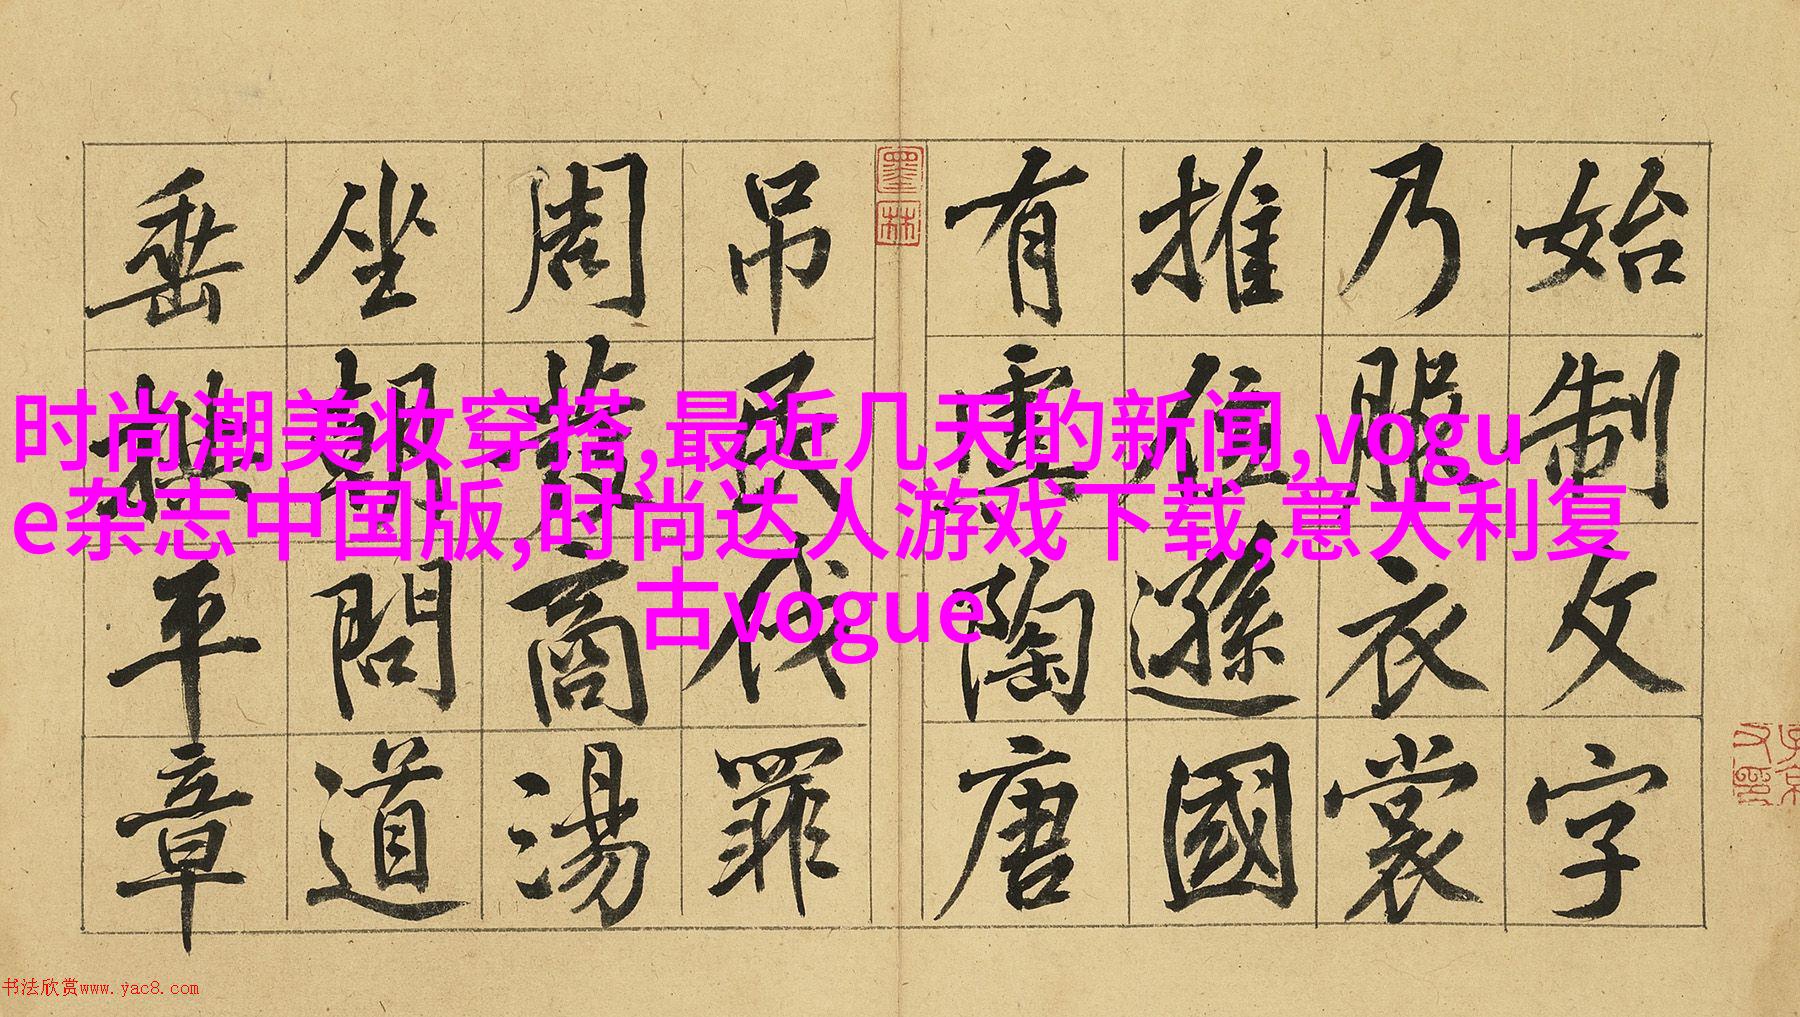 始制文字
乃服衣裳
推位遜國
有虞陶唐
墨林
吊民伐罪
周發商湯
坐朝問道
垂拱平章
时尚潮美妆穿搭,最近几天的新闻,vogu
e杂志中国版,时尚达人游戏下载,意大利复
古vogue
书法欣赏www.yac8.com